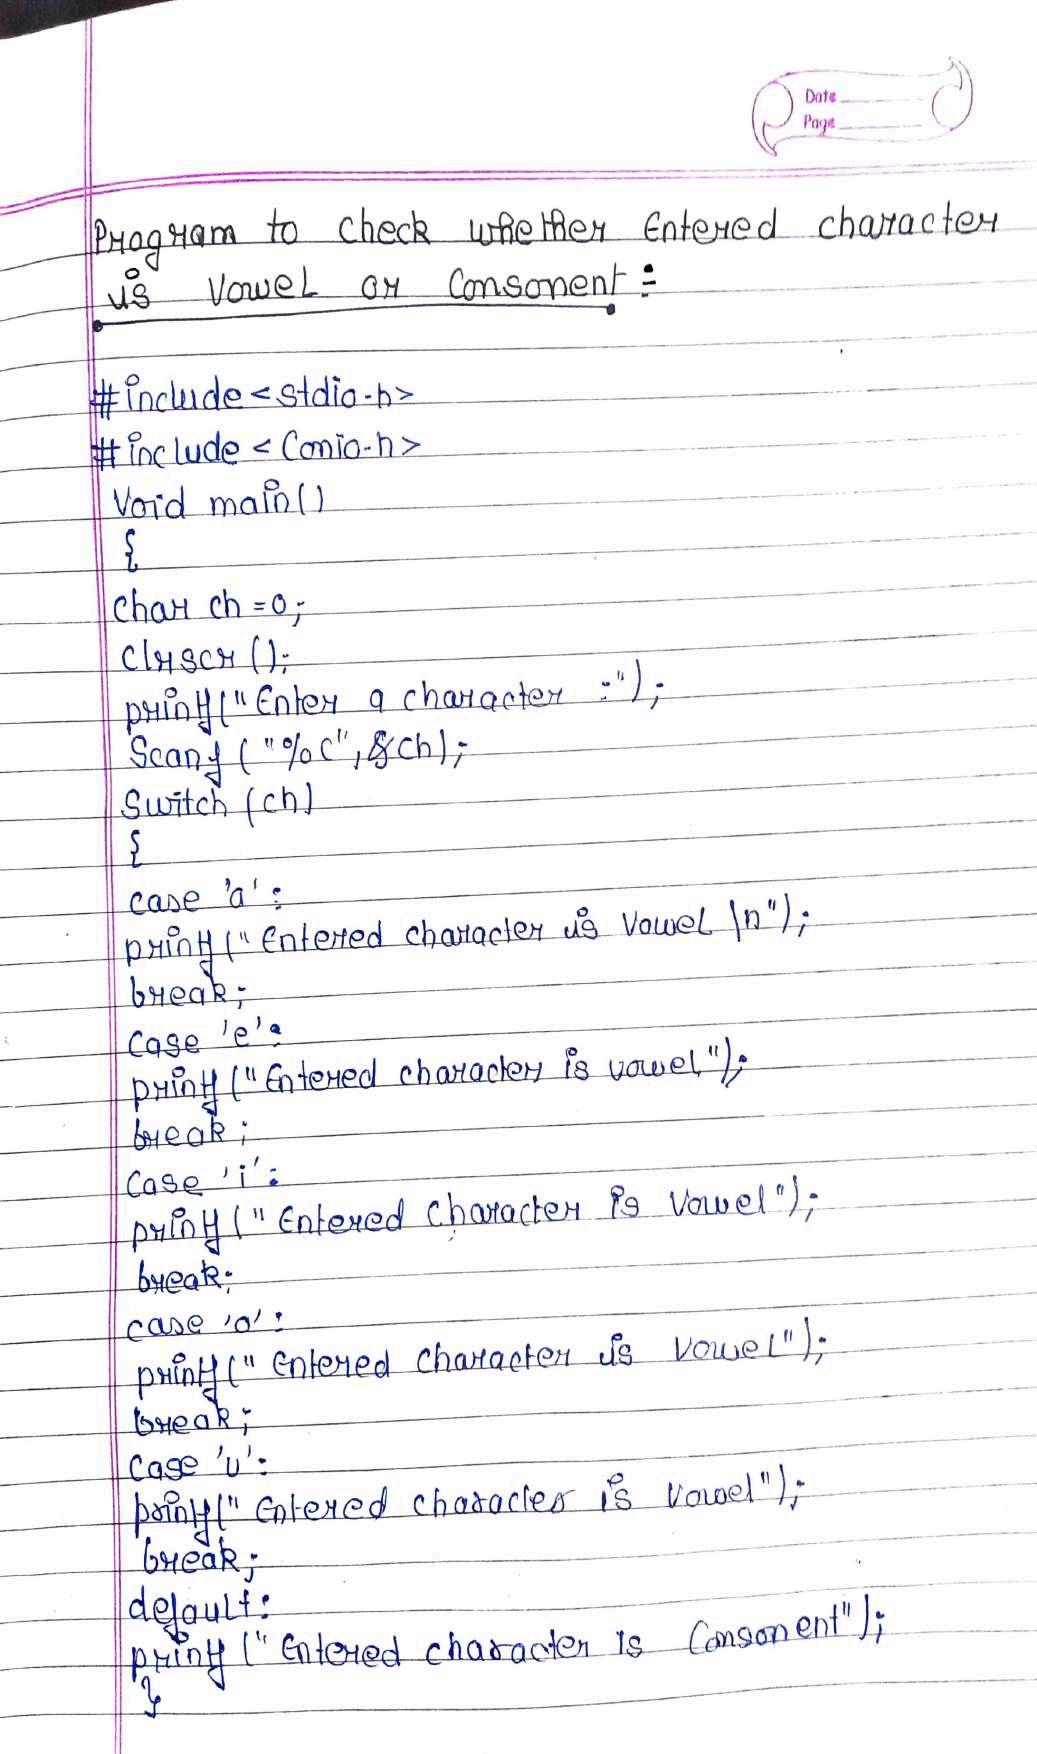 Date
Page
Program to check whether Entered character
is Vowel or Consonent :
#include<stdio.h>
#include<Conio.h>
Void main()
{
char ch=0;
clrscr();
printf("Enter a character :");
Scanf("%c",&ch);
Switch(ch)
{
case 'a':
printf("Entered character is Vowel \n");
break;
case 'e':
printf("Entered character is vowel");
break;
Case 'i':
printf("Entered character is Vowel");
break;
case 'o':
printf("Entered character is Vowel");
break;
Case 'u':
printf("Entered character is Vowel");
break;
default:
printf("Entered character is Consonent");
}